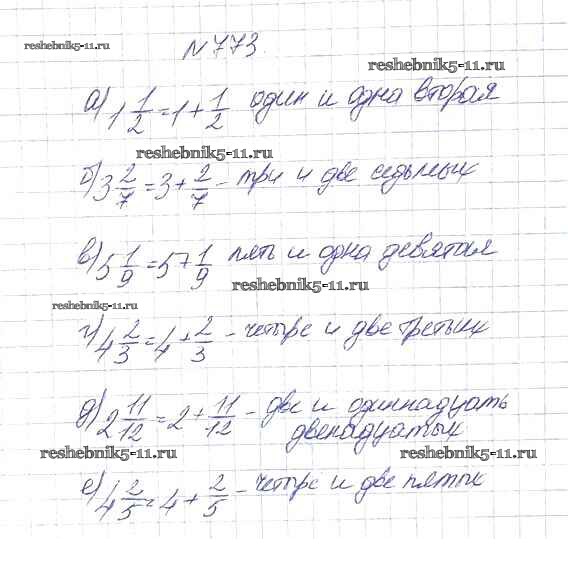 reshebnik5-11.ru
№773.
reshebnik5-11.ru
а) 1 1/2 = 1 + 1/2 один и одна вторая
reshebnik5-11.ru
б) 3 2/7 = 3 + 2/7 - три и две седьмых
в) 5 1/9 = 5 + 1/9 пять и одна девятая
reshebnik5-11.ru
reshebnik5-11.ru
г) 4 2/3 = 4 + 2/3 - четыре и две третьих
д) 2 11/12 = 2 + 11/12 - две и одиннадцать
двенадцатых
reshebnik5-11.ru reshebnik5-11.ru
е) 4 2/5 = 4 + 2/5 - четыре и две пятых